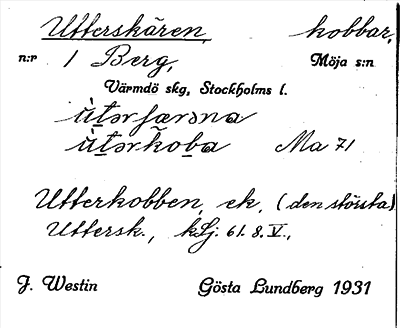 Utterskären, kobbar,
n:r 1 Berg, Möja s:n
Värmdö skg, Stockholms l.
ùtərʃærəna
ùtərkoba Ma 71
Utterkobben, ek. (den största)
Uttersk., kSj. 61. 8. V.,
J. Westin Gösta Lundberg 1931